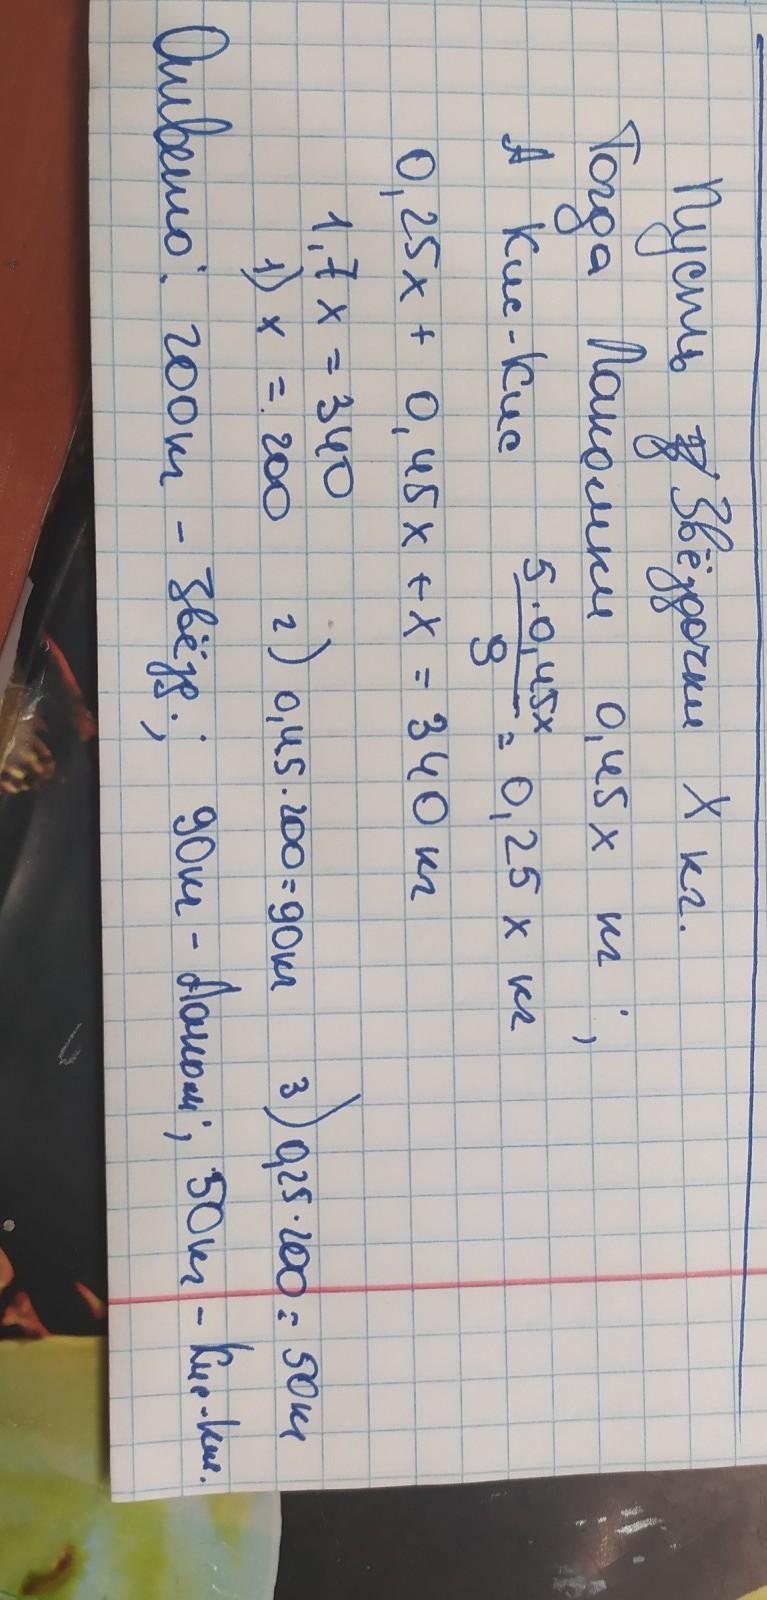 Пусть Звёздочки X кг.
Тогда Лакомки 0,45x кг;
А Кис-Кис 5·0,45x/9 = 0,25x кг
0,25x + 0,45x + x = 340 кг
1,7x = 340
1) x = 200 2) 0,45·200=90кг 3) 0,25·200=50кг
Ответ: 200кг - Звёзд.; 90кг - Лаком; 50кг - Кис-кис.